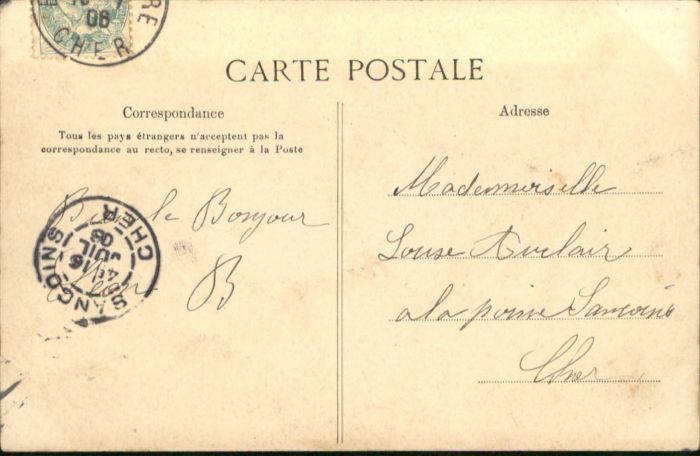 RE
06
CHER
CARTE POSTALE
Correspondance
Tous les pays étrangers n'acceptent pas la
correspondance au recto, se renseigner à la Poste
Bien le Bonjour
B
SANCOINS
CHER
4E
16
JUIL
06
Adresse
Mademoiselle
Louse Auclair
a la poine
Cher